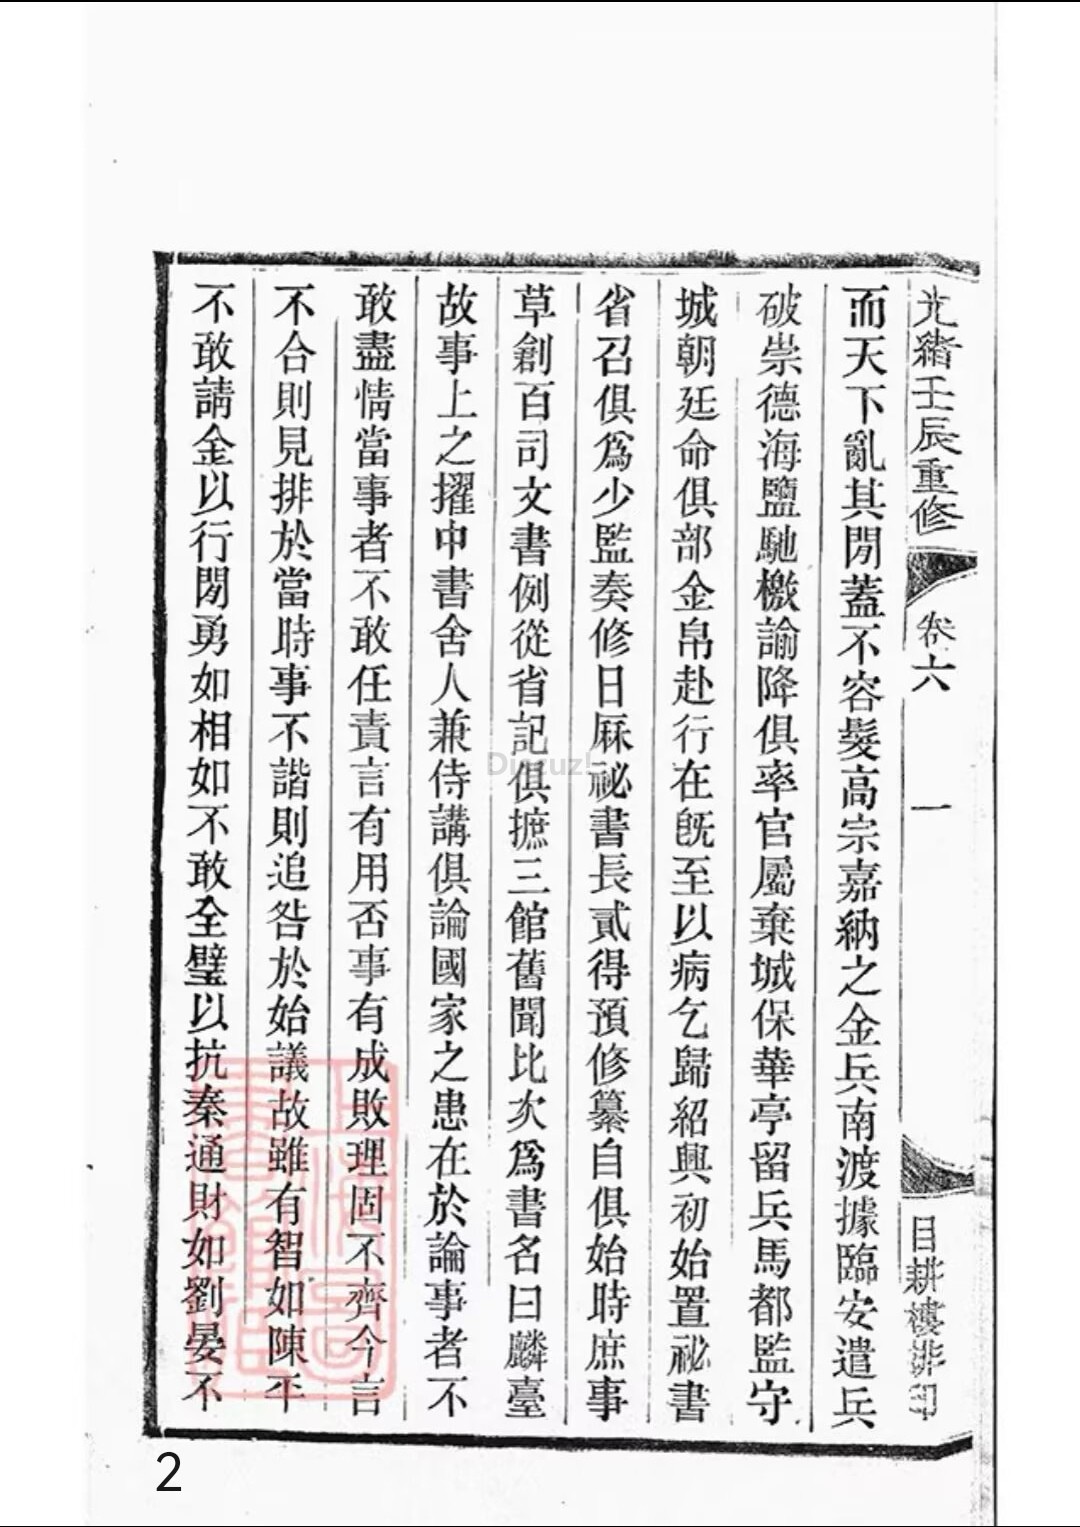 光緒壬辰重修
卷六
一
目耕樓排印
而天下亂其閒蓋不容髮高宗嘉納之金兵南渡據臨安遣兵
破崇德海鹽馳檄諭降俱率官屬棄城保華亭留兵馬都監守
城朝廷命俱部金帛赴行在旣至以病乞歸紹興初始置祕書
省召俱爲少監奏修日厤祕書長貳得預修纂自俱始時庶事
草創百司文書例從省記俱摭三館舊聞比次爲書名曰麟臺
故事上之擢中書舍人兼侍講俱論國家之患在於論事者不
敢盡情當事者不敢任責言有用否事有成敗理固不齊今言
不合則見排於當時事不諧則追咎於始議故雖有智如陳平
不敢請金以行閒勇如相如不敢全璧以抗秦通財如劉晏不
Discuz!
上海圖書館藏
2